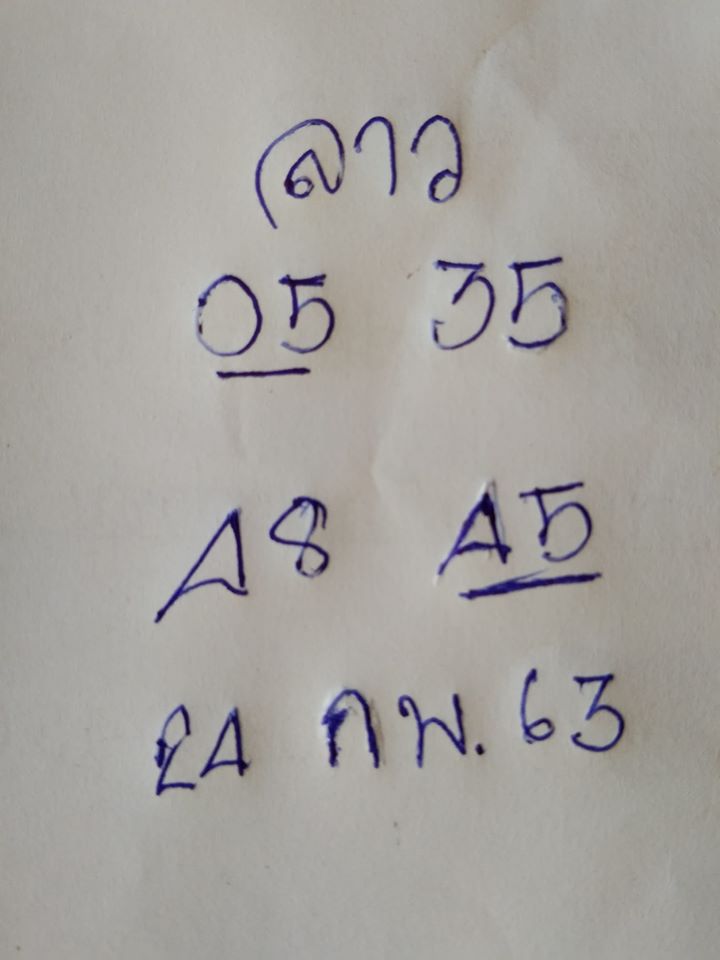 ลาว
05 35
48 45
24 กพ. 63